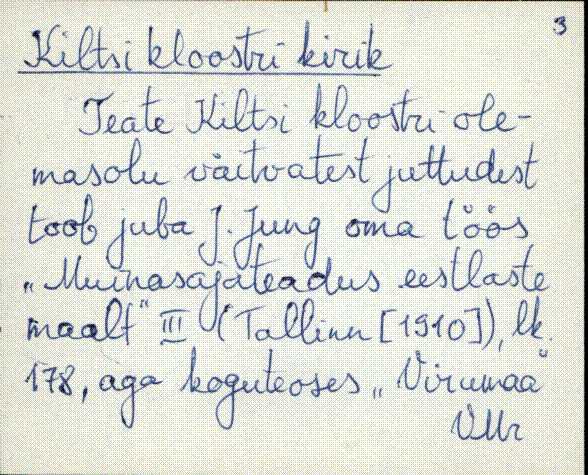 3
Kiltsi kloostri kirik
Teate Kiltsi kloostri ole-
masolu väitvatest juttudest
toob juba J. Jung oma töös
„Muinasajateadus eestlaste
maalt" III (Tallinn [1910]), lk.
178, aga koguteoses „Virumaa"
VMr